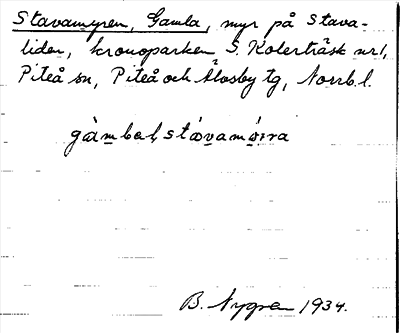 Stavamyren, Gamla, myr på Stava-
liden, kronoparken S. Kolerträsk nr 1,
Piteå sn, Piteå och Älvsby tg, Norrb. l.
gàmbal,stávamø̀ɪra
B. Nygren 1934.